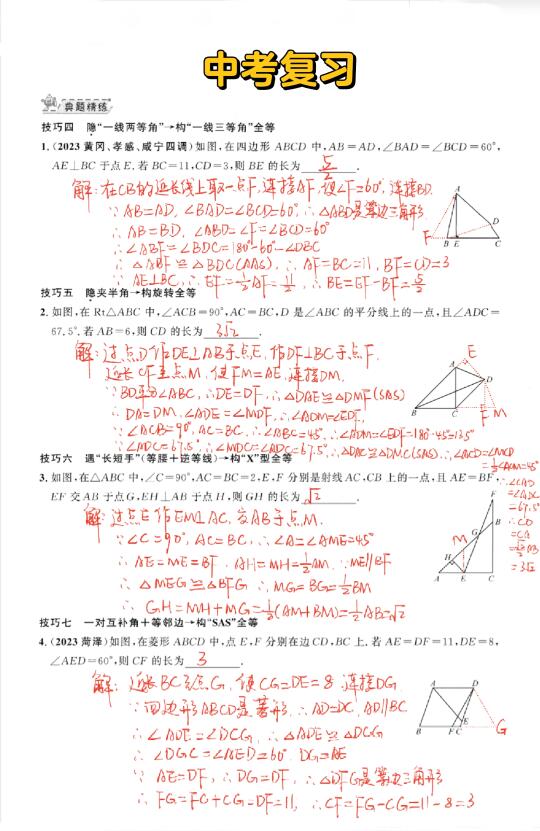 中考复习
典题精练
技巧四 隐“一线两等角”→构“一线三等角”全等
1.(2023 黄冈、孝感、咸宁四调)如图,在四边形 ABCD 中,AB=AD,∠BAD=∠BCD=60°,
AE⊥BC 于点 E.若 BC=11,CD=3,则 BE 的长为 5/2 .
解:在CB的延长线上取一点F,连接AF,使∠F=60°,连接BD.
∵AB=AD,∠BAD=∠BCD=60°,∴△ABD是等边三角形
∴AB=BD,∠ABD=∠F=∠BCD=60°
∴∠ABF=∠BDC=180°-60°-∠DBC
∴△ABF≌△BDC(AAS),∴AF=BC=11,BF=CD=3
∵AE⊥BC,∴EF=1/2AF=11/2,∴BE=EF-BF=5/2
技巧五 隐夹半角→构旋转全等
2.如图,在 Rt△ABC 中,∠ACB=90°,AC=BC,D 是∠ABC 的平分线上的一点,且∠ADC=
67.5°.若 AB=6,则 CD 的长为 3√2 .
解:过点D作DE⊥AB于点E,作DF⊥BC于点F.
延长CF至点M,使FM=AE,连接DM,
∵BD平分∠ABC,∴DE=DF,∴△DAE≌△DMF(SAS)
∴DA=DM,∠ADE=∠MDF,∴∠ADM=∠EDF,
∵∠ACB=90°,AC=BC,∴∠ABC=45°,∴∠ADM=∠EDF=180°-45°=135°
∵∠ADC=67.5°,∴∠MDC=∠ADC=67.5°,∴△DAC≌△DMC(SAS),∴∠ACD=∠MCD
=1/2∠ACM=45°
∴∠CAD
=∠ADC
=67.5°
∴CD
=CA
=√2/2AB
=3√2
技巧六 遇“长短手”(等腰+逆等线)→构“X”型全等
3.如图,在△ABC 中,∠C=90°,AC=BC=2,E,F 分别是射线 AC,CB 上的一点,且 AE=BF,
EF 交 AB 于点 G,EH⊥AB 于点 H,则 GH 的长为 √2 .
解:过点E作EM⊥AC,交AB于点M.
∵∠C=90°,AC=BC,∴∠A=∠AME=45°
∴AE=ME=BF,AH=MH=1/2AM,∵ME∥BF
∴△MEG≌△BFG ∴MG=BG=1/2BM
∴GH=MH+MG=1/2(AM+BM)=1/2AB=√2
技巧七 一对互补角+等邻边→构“SAS”全等
4.(2023 菏泽)如图,在菱形 ABCD 中,点 E,F 分别在边 CD,BC 上.若 AE=DF=11,DE=8,
∠AED=60°,则 CF 的长为 3 .
解:延长BC至点G,使CG=DE=8,连接DG
∵四边形ABCD是菱形,∴AD=DC,AD∥BC
∴∠ADE=∠DCG,∴△ADE≌△DCG
∴∠DGC=∠AED=60° DG=AE
∵AE=DF,∴DG=DF,∴△DFG是等边三角形
∴FG=FC+CG=DF=11,∴CF=FG-CG=11-8=3